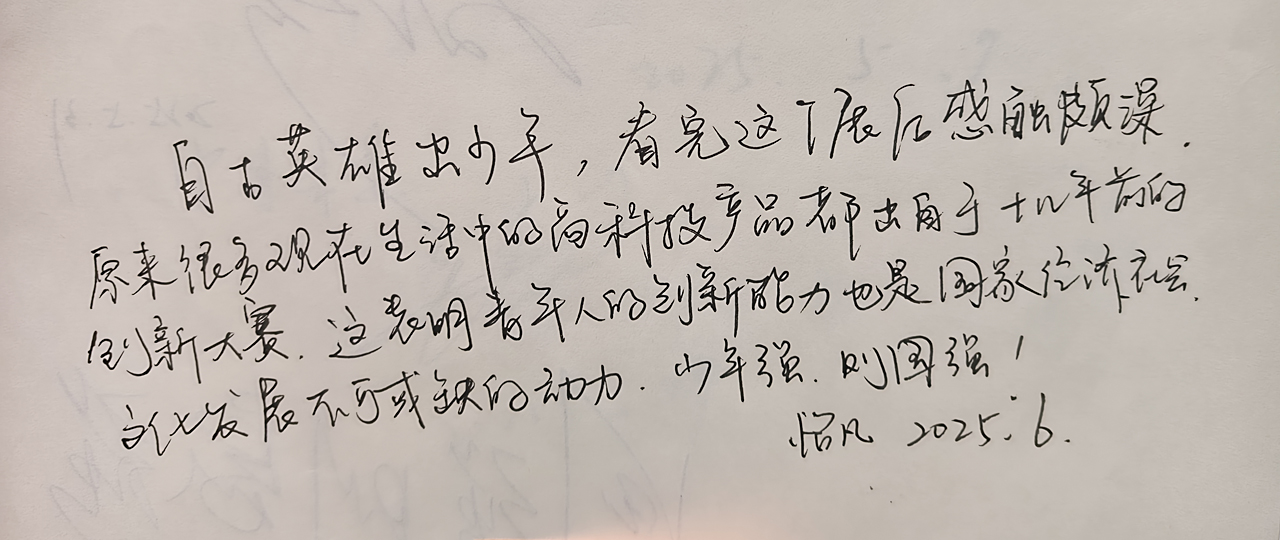 自古英雄出少年，看完这个展后感触颇深.
原来很多现在生活中的高科技产品都出自于十几年前的
创新大赛.这表明青年人的创新能力也是国家经济社会.
文化发展不可或缺的动力.少年强.则国强！
怡凡 2025.6.